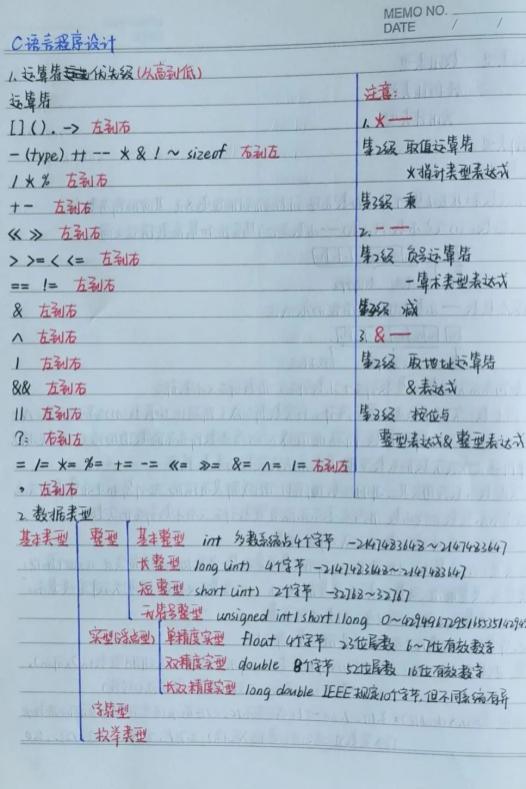 MEMO NO.
DATE / /
C语言程序设计
1. 运算符优先级(从高到低)
运算符
[] () . -> 左到右
- (type) ++ -- * & ! ~ sizeof 右到左
/ * % 左到右
+ - 左到右
<< >> 左到右
> >= < <= 左到右
== != 左到右
& 左到右
^ 左到右
| 左到右
&& 左到右
|| 左到右
?: 右到左
= /= *= %= += -= <<= >>= &= ^= |= 右到左
, 左到右
注意:
1. * —
第2级 取值运算符
*指针类型表达式
第3级 乘
2. - —
第2级 负号运算符
-算术类型表达式
第4级 减
3. & —
第2级 取地址运算符
&表达式
第8级 按位与
整型表达式&整型表达式
2. 数据类型
基本类型 整型 基本整型 int 多数系统占4个字节 -2147483648~2147483647
长整型 long (int) 4个字节 -2147483648~2147483647
短整型 short (int) 2个字节 -32768~32767
无符号整型 unsigned int|short|long 0~4294967295|65535|
实型(浮点型) 单精度实型 float 4个字节 23位尾数 6~7位有效数字
双精度实型 double 8个字节 52位尾数 16位有效数字
长双精度实型 long double IEEE规定10个字节,但不同系统有异
字符型
枚举类型